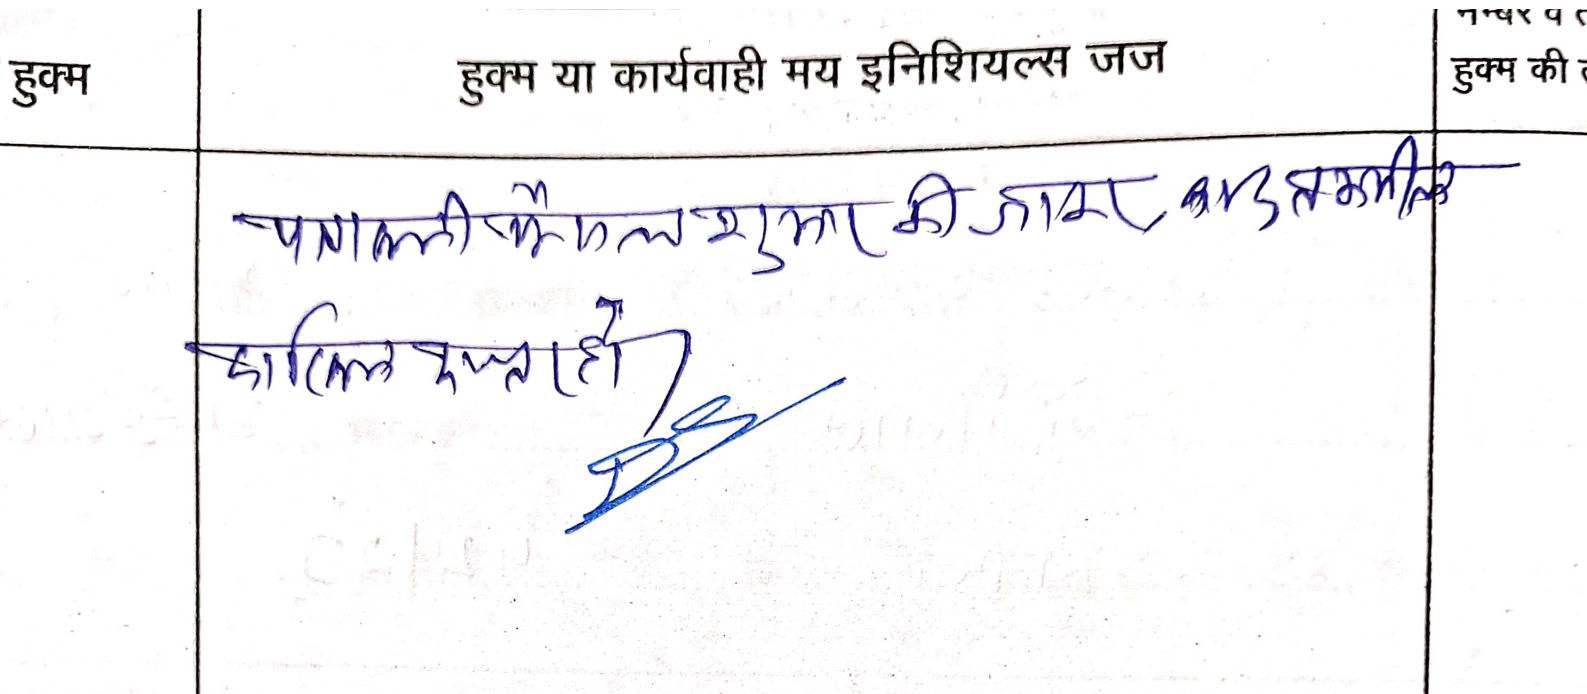 नम्बर व त
हुक्म
हुक्म या कार्यवाही मय इनिशियल्स जज
हुक्म की त
पत्रावली फैसल शुमार की जाकर, बाद तकमील
दाखिल दफ्तर हो।